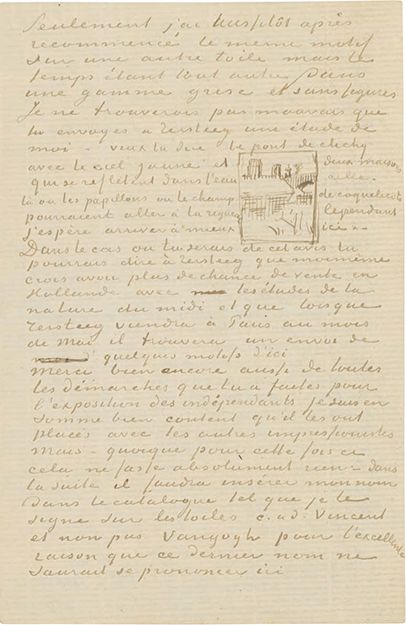 Seulement j'ai aussitôt après
recommencé le même motif
sur une autre toile mais le
temps étant tout autre Dans
une gamme grise et sans figures
Je ne trouverais pas mauvais que
tu envoyes à Tersteeg une étude de
moi – veux tu dire le pont de clichy
avec le ciel jaune et deux maisons
qui se reflètent dans l'eau celle-
là ou les papillons ou le champ de coquelicots
pourraient aller à la rigueur cependant
j'espère arriver à mieux ici.
Dans le cas où tu serais de cet avis tu
pourrais dire à Tersteeg que moimême
crois avoir plus de chance de vente en
Hollande avec les études de la
nature du midi et que lorsque
Tersteeg viendra à Paris au mois
de Mai il trouvera un envoi de
quelques motifs d'ici
Merci bien encore aussi de toutes
les démarches que tu a faites pour
l'exposition des indépendants je suis en
somme bien content qu'il les ont
placés avec les autres impressionistes
Mais – quoique pour cette fois ci
cela ne fasse absolument rien – dans
la suite il faudra insérer mon nom
Dans le catalogue tel que je le
signe sur les toiles c.a.d. Vincent
et non pas Vangogh pour l'excellente
raison que ce dernier nom ne
saurait se prononcer ici